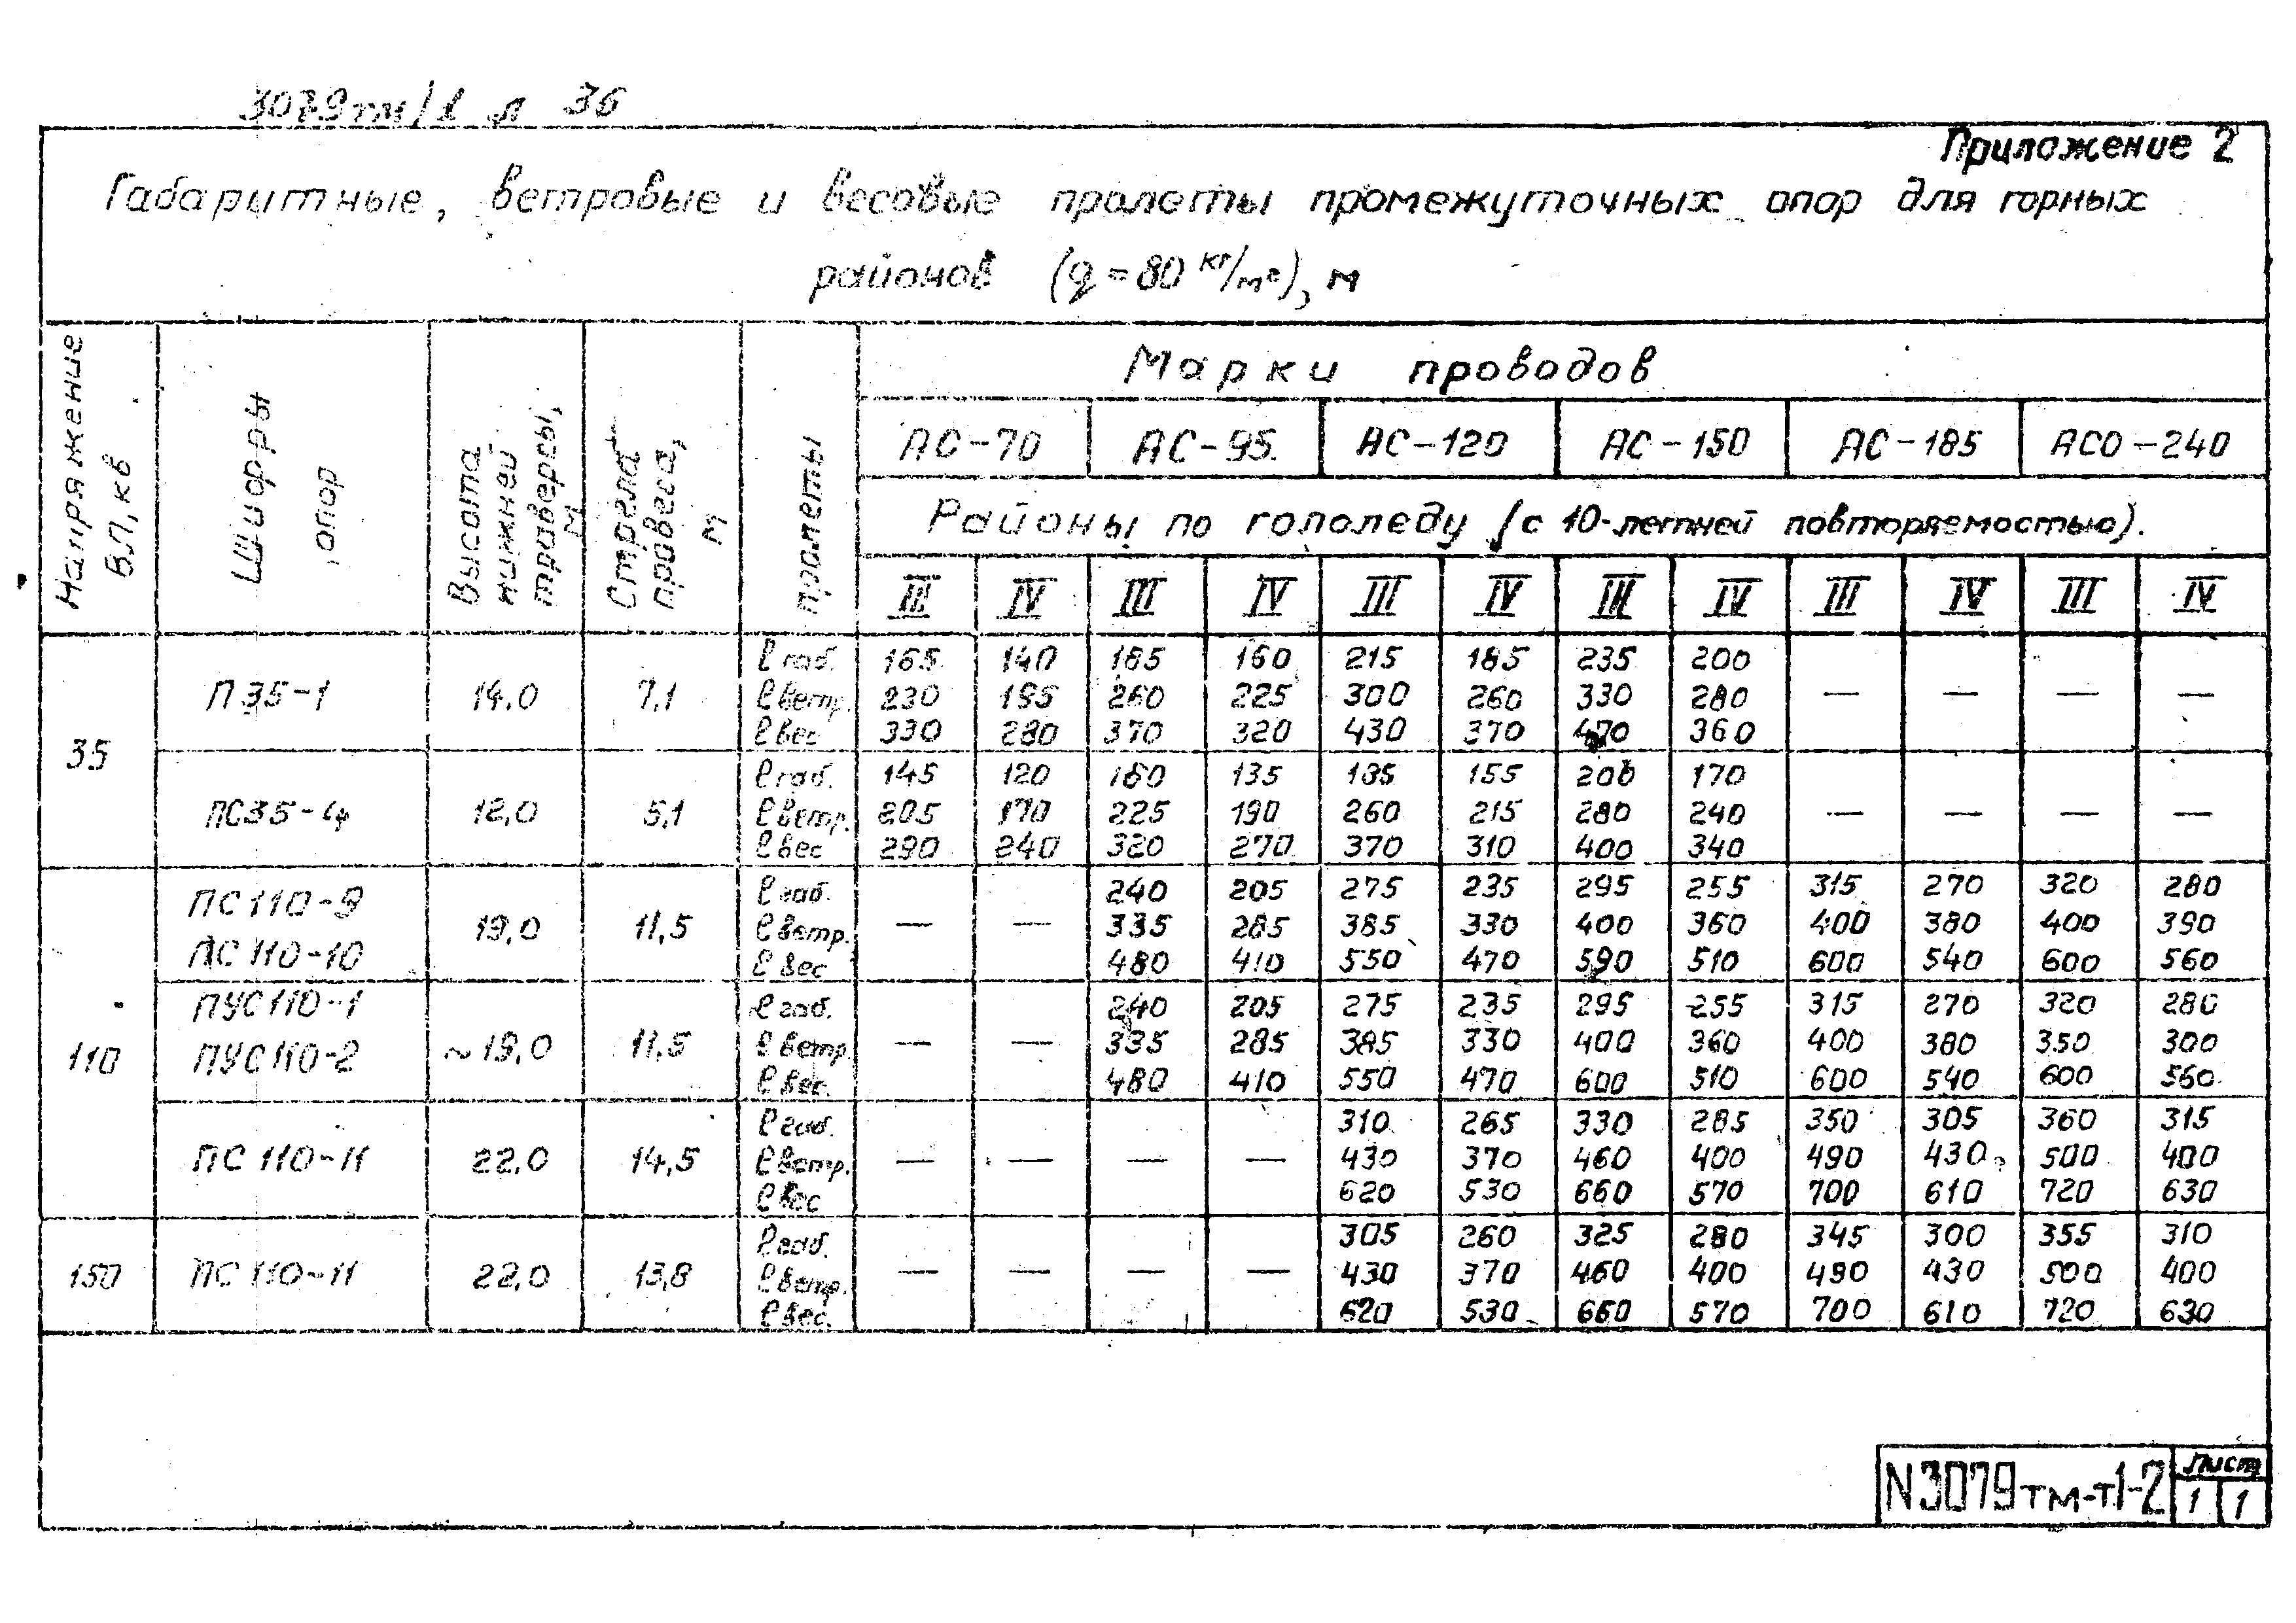 3079тм/1 л 36
Приложение 2
Габаритные, ветровые и весовые пролеты промежуточных опор для горных
районов (q=80 кг/м²), м
Напряжение ВЛ, кв
Шифры опор
Высота нижней траверсы, м
Стрела провеса, м
пролеты
Марки проводов
АС-70 АС-95 АС-120 АС-150 АС-185 АСО-240
Районы по гололеду (с 10-летней повторяемостью).
III IV III IV III IV III IV III IV III IV
35
П35-1 14,0 7,1
l габ. 165 140 185 160 215 185 235 200
l ветр. 230 195 260 225 300 260 330 280 — — — —
l вес 330 280 370 320 430 370 470 360
ПС35-4 12,0 5,1
l габ. 145 120 160 135 185 155 200 170
l ветр. 205 170 225 190 260 215 280 240 — — — —
l вес 290 240 320 270 370 310 400 340
110
ПС110-9
ПС110-10
19,0 11,5
l габ. 240 205 275 235 295 255 315 270 320 280
l ветр. — — 335 285 385 330 400 360 400 380 400 390
l вес 480 410 550 470 590 510 600 540 600 560
ПУС110-1
ПУС110-2
~19,0 11,5
l габ. 240 205 275 235 295 255 315 270 320 280
l ветр. — — 335 285 385 330 400 360 400 380 350 300
l вес. 480 410 550 470 600 510 600 540 600 560
ПС110-11 22,0 14,5
l габ. 310 265 330 285 350 305 360 315
l ветр. — — — — 430 370 460 400 490 430 500 400
l вес 620 530 660 570 700 610 720 630
150
ПС110-11 22,0 13,8
l габ. 305 260 325 280 345 300 355 310
l ветр. — — — — 430 370 460 400 490 430 500 400
l вес. 620 530 660 570 700 610 720 630
N3079тм-т.1-2
Лист
1 1